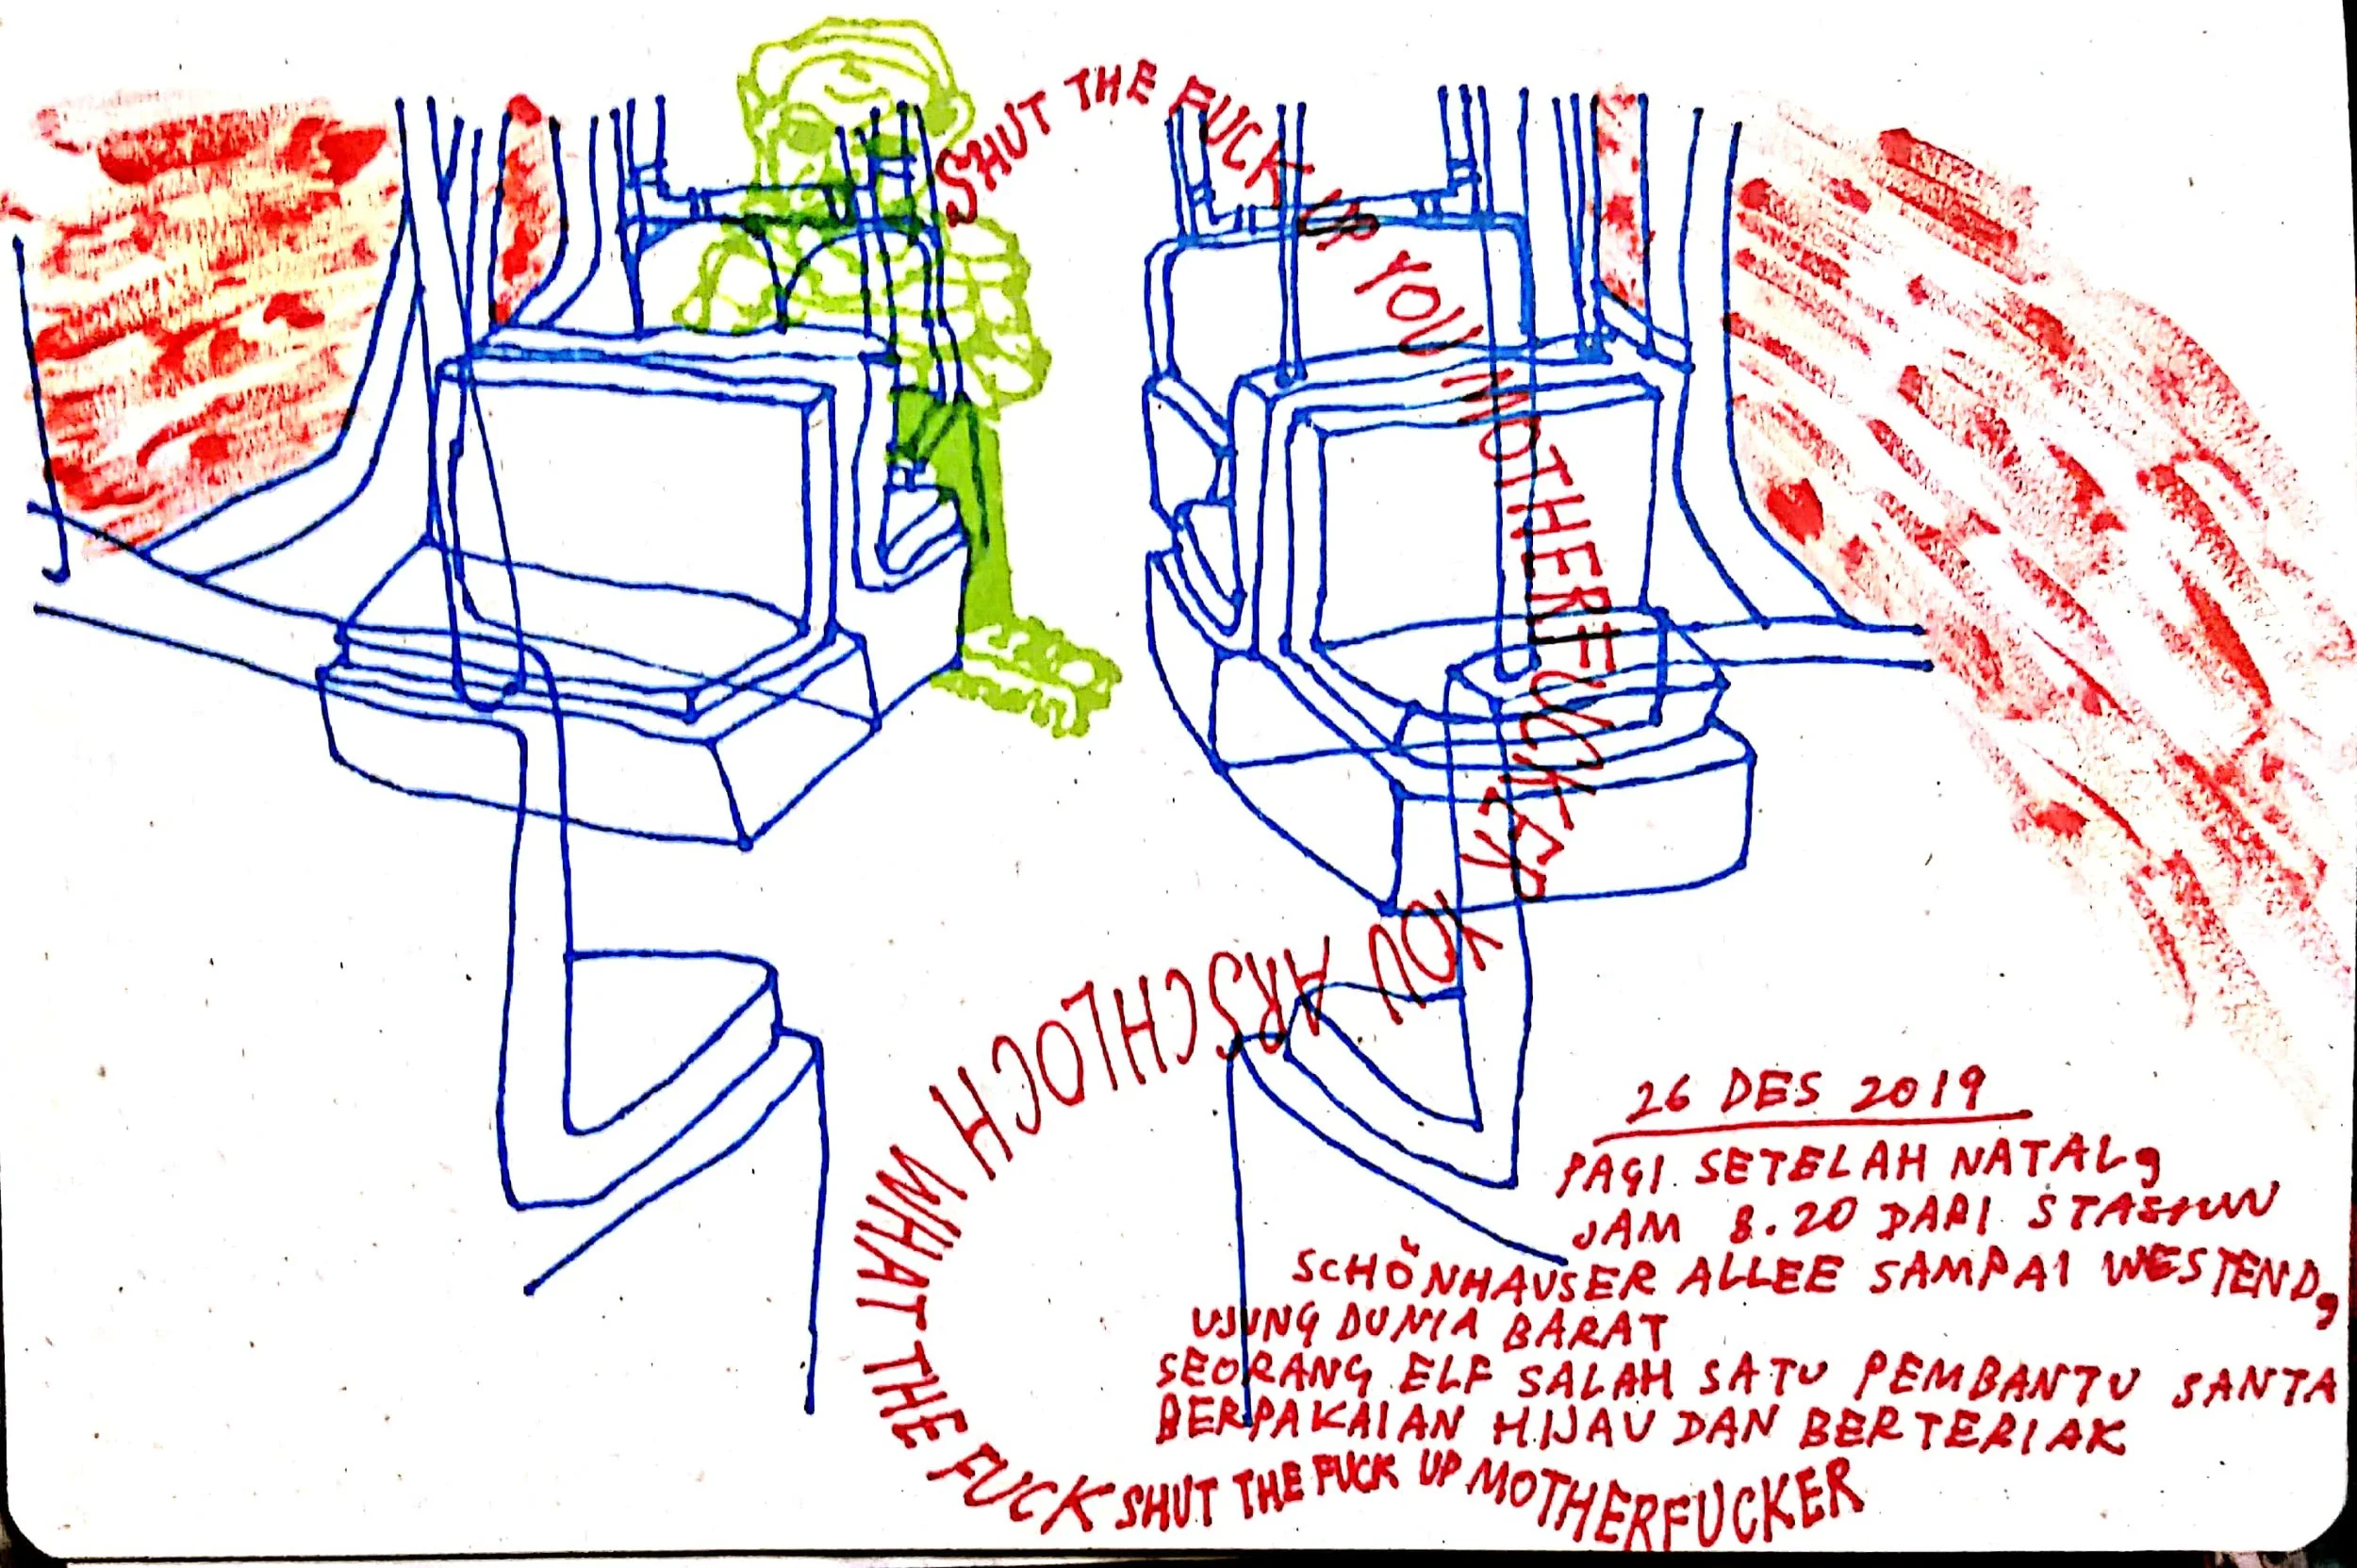 SHUT THE FUCK UP YOU MOTHERFUCKER YOU ARSCHLOCH WHAT THE FUCK SHUT THE FUCK UP MOTHERFUCKER
26 DES 2019
PAGI SETELAH NATAL,
JAM 8.20 DARI STASIUN
SCHÖNHAUSER ALLEE SAMPAI WESTEND,
UJUNG DUNIA BARAT
SEORANG ELF SALAH SATU PEMBANTU SANTA
BERPAKAIAN HIJAU DAN BERTERIAK